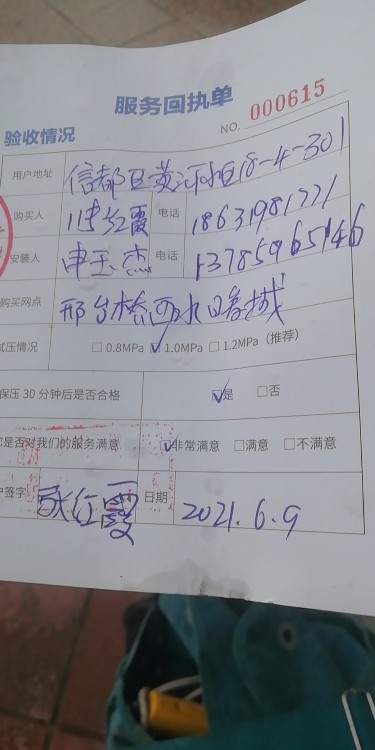 服务回执单
NO. 000615
验收情况
用户地址 信都区黄河桓18-4-301
购买人 红霞 电话 18631981771
安装人 申玉杰 电话 13785965146
购买网点 邢台桥西水暖城
试压情况 □0.8MPa ☑1.0MPa □1.2MPa（推荐）
保压30分钟后是否合格 ☑是 □否
您是否对我们的服务满意 ☑非常满意 □满意 □不满意
户签字 张红霞 日期 2021.6.9